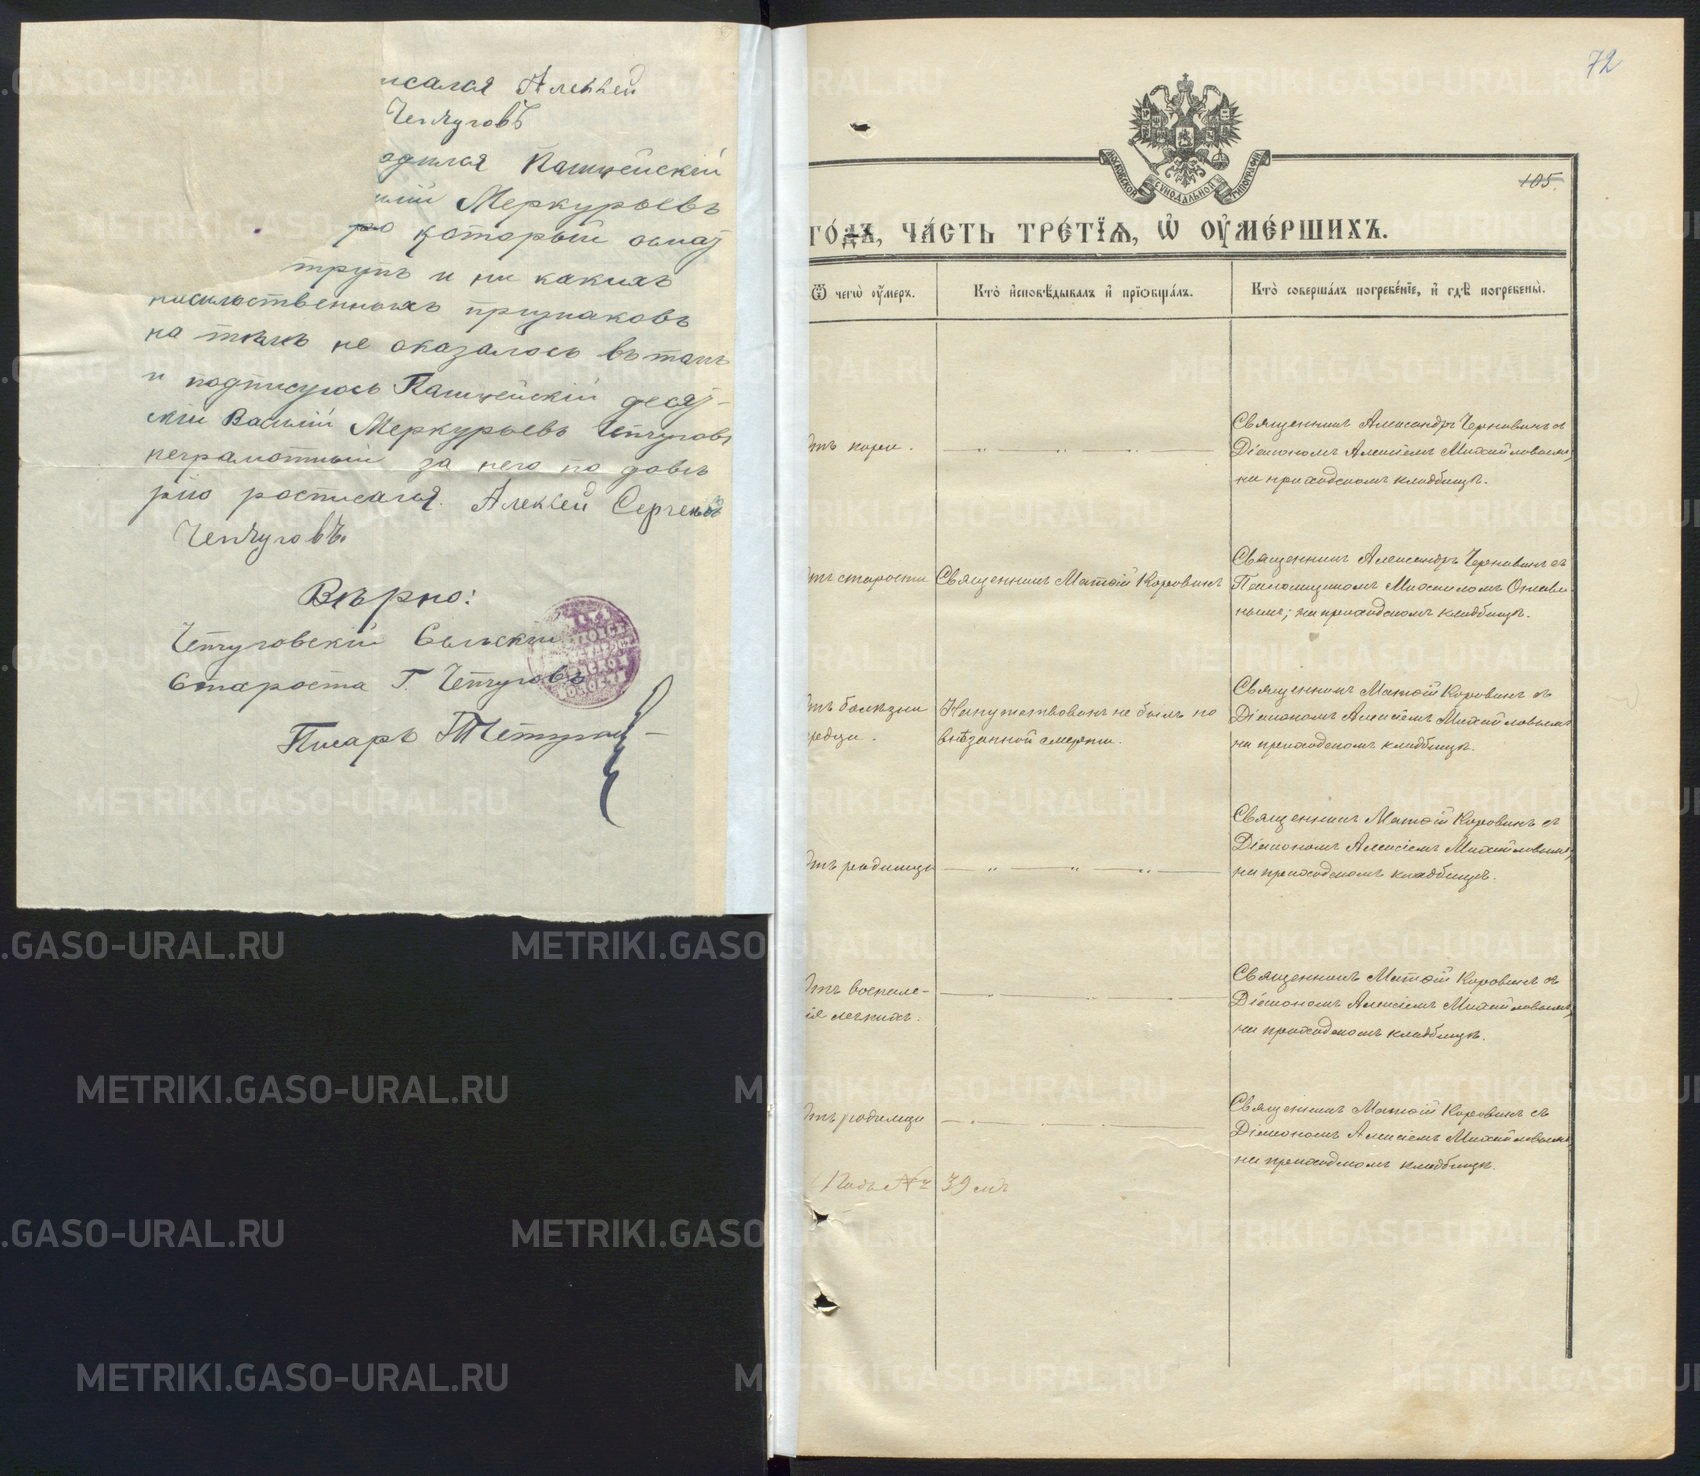 исался Алексей
Чепчуговъ
одился Кашцейскій
илій Меркурьевъ
ро который осматр
трупъ и ни какихъ
насильственныхъ признаковъ
на тѣлѣ не оказалось въ томъ
и подписуюсь Кашцейскій десят-
скій Василій Меркурьевъ Чепчуговъ
неграмотный за него по довѣ
рію росписался. Алексей Сергеевъ
Чепчуговъ.
Вѣрно:
Чепчуговскій Сельскій
Староста Г. Чепчуговъ
Писарь
72
МОСКОВСКОЙ СѴНОДАЛЬНОЙ ТИПОГРАФІИ
105.
ГО́ДЪ, ЧА́СТЬ ТРЕ́ТІѦ, Ѡ҆ ОУ҆МЕ́РШИХЪ.
Ѿ чегѡ̀ оу҆́меръ.
Кто̀ и҆сповѣ́дывалъ и҆ прїѡбща́лъ.
Кто̀ соверша́лъ погребе́нїе, и҆ гдѣ̀ погребены̀.
отъ кори.
Священникъ Александръ Черновинъ съ
Діакономъ Алексіемъ Михайловымъ,
на приходскомъ кладбищѣ.
отъ старости
Священникъ Матѳій Коровинъ
Священникъ Александръ Черновинъ съ
Псаломщикомъ Михаиломъ
на приходскомъ кладбищѣ.
отъ болѣзни
сердца.
Напутствованъ не былъ по
внѣзапной смерти.
Священникъ Матѳій Коровинъ съ
Діакономъ Алексіемъ Михайловымъ
на приходскомъ кладбищѣ.
отъ родимца
Священникъ Матѳій Коровинъ съ
Діакономъ Алексіемъ Михайловымъ,
на приходскомъ кладбищѣ.
отъ воспале-
ія легкихъ.
Священникъ Матѳій Коровинъ съ
Діакономъ Алексіемъ Михайловымъ,
на приходскомъ кладбищѣ.
отъ родимца
Священникъ Матѳій Коровинъ съ
Діакономъ Алексіемъ Михайловымъ,
на приходскомъ кладбищѣ.
Подъ № 39 мъ
METRIKI.GASO-URAL.RU